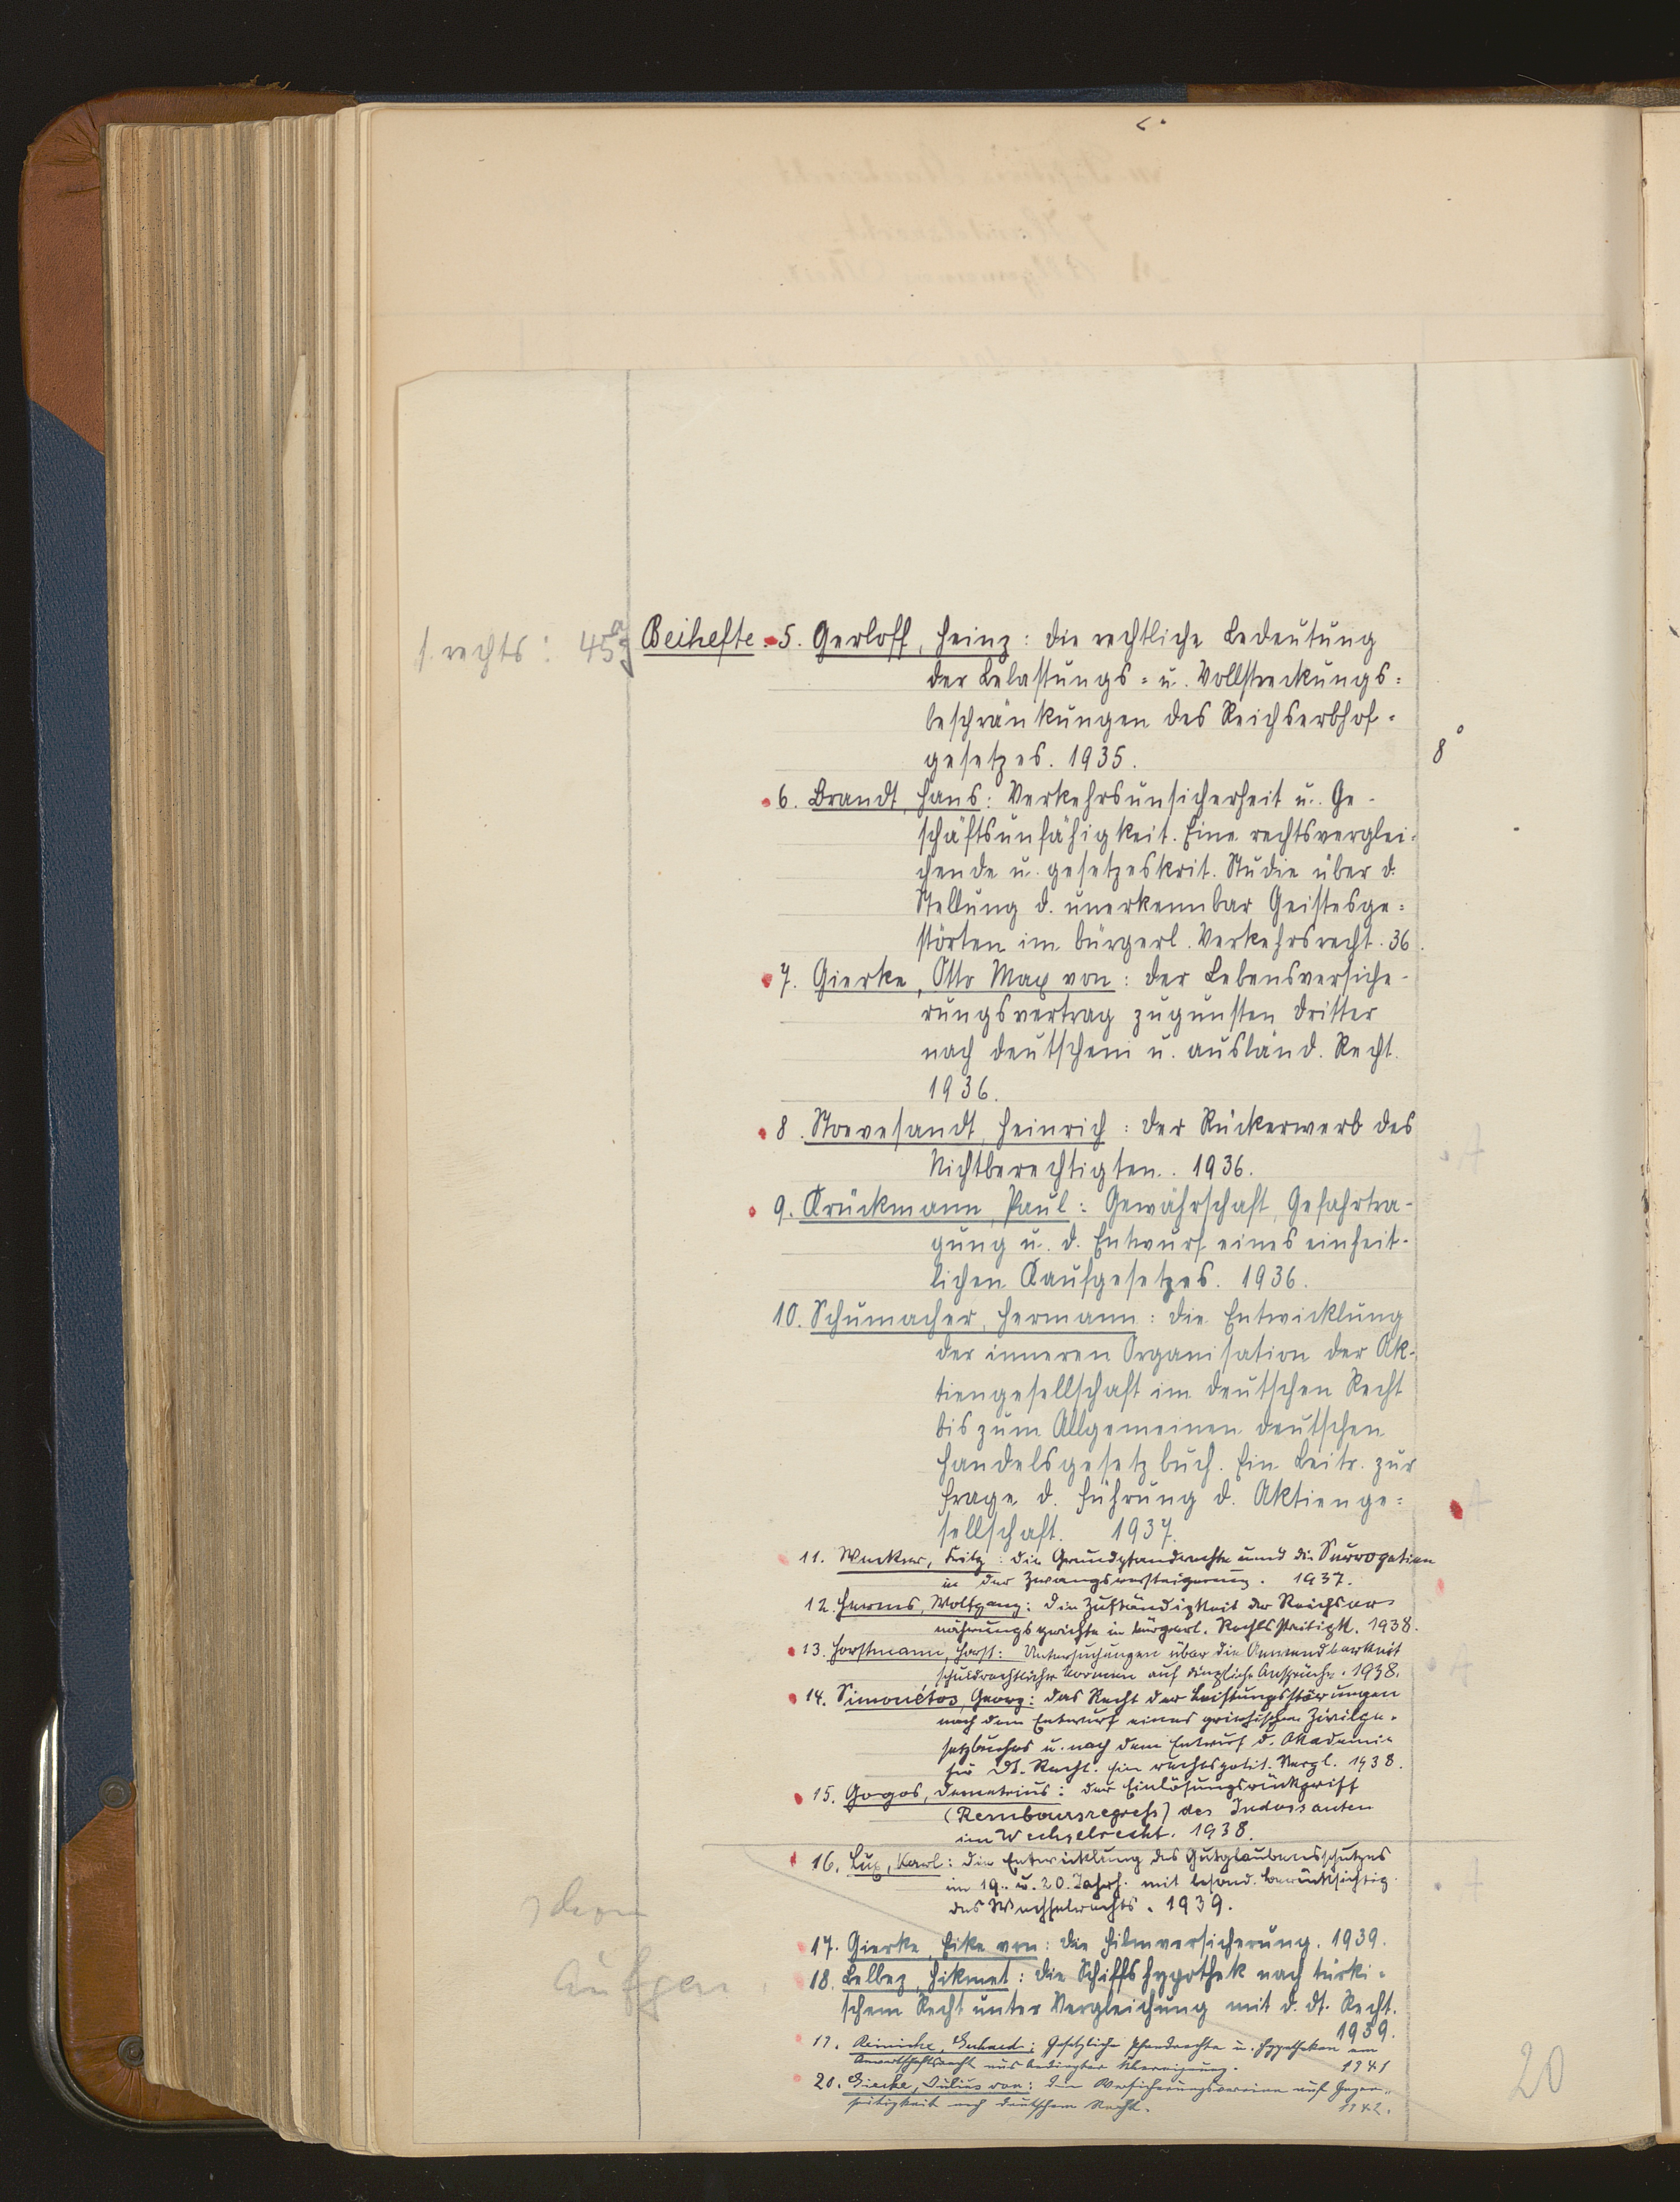 s. rechts: 45a g Beihefte. 5. Gerloff, Heinz: Die rechtliche Bedeutung
der Belastungs= u. Vollstreckungs=
beschränkungen des Reichserbhof=
gesetzes. 1935.
8°
6. Brandt, Hans: Verkehrsunsicherheit u. Ge-
schäftsunfähigkeit. Eine rechtsverglei=
chende u. gesetzeskrit. Studie über d.
Stellung d. unerkennbar Geistesge=
störten im bürgerl. Verkehrsrecht. 36.
7. Gierke, Otto Max von: Der Lebensversiche-
rungsvertrag zugunsten Dritter
nach deutschem u. ausländ. Recht.
1936.
8. Stoevesandt, Heinrich: Der Rückerwerb des
Nichtberechtigten. 1936.
9. Krückmann, Paul: Gewährschaft, Gefahrtra-
gung u. d. Entwurf eines einheit-
lichen Kaufgesetzes. 1936.
10. Schumacher, Hermann: Die Entwicklung
der inneren Organisation der Ak-
tiengesellschaft im deutschen Recht
bis zum Allgemeinen deutschen
Handelsgesetzbuch. Ein Beitr. zur
Frage d. Führung d. Aktienge=
sellschaft. 1937.
11. Fritz: Die Grundpfandrechte und die Surrogation
in der Zwangsversteigerung. 1937.
12. Harms, Wolfgang: Die Zuständigkeit der Reichser-
nährungsgerichte in bürgerl. Rechtsstreitigk. 1938.
13. Horstmann, Horst: Untersuchungen über die Anwendbarkeit
schuldrechtlicher Normen auf dingliche Ansprüche. 1938.
14. Simonétos, Georg: Das Recht der Leistungsstörungen
nach dem Entwurf eines griechischen Zivilge-
setzbuches u. nach dem Entwurf d. Akademie
für Dt. Recht. Ein rechtspolit. Vergl. 1938.
15. Gogos, Demetrius: Der Einlösungsrückgriff
(Remboursregreß) des Indossanten
im Wechselrecht. 1938.
16. Lux, Karl: Die Entwicklung des Gutglaubensschutzes
im 19. u. 20. Jahrh. mit besond. Berücksichtig.
des Wechselrechts. 1939.
schon
17. Gierke, Eike von: Die Filmversicherung. 1939.
Aufgen.
18. Belbez, Hikmet: Die Schiffshypothek nach türki=
schem Recht unter Vergleichung mit d. dt. Recht.
1939.
19. Reinicke, Gerhard: Gesetzliche Pfandrechte u. Hypotheken am
Anwartschaftsrecht aus bedingter Übereignung. 1941
20. Gierke, Julius von: Die Versicherungsvereine auf Gegen-
seitigkeit nach deutschem Recht. 1942.
20